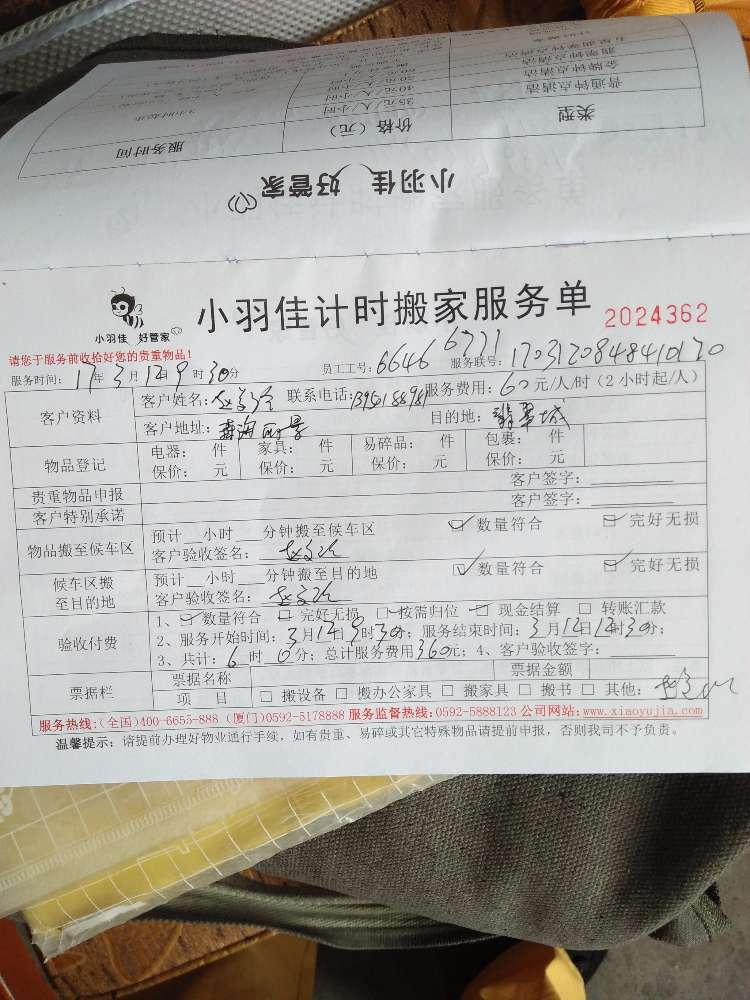 小羽佳 好管家
类型 价格（元） 服务时间
普通钟点清洁 35元/人/小时
金牌钟点清洁 40元/人/小时
小羽佳 好管家
小羽佳计时搬家服务单 2024362
请您于服务前收拾好您的贵重物品！
服务时间：17年3月12日9时30分 员工工号：6646 6771 服务联号：
客户资料
客户姓名： 联系电话： 服务费用：60元/人/时（2小时起/人）
客户地址： 目的地：翡翠城
物品登记
电器： 件 家具： 件 易碎品： 件 包裹： 件
保价： 元 保价： 元 保价： 元 保价： 元
贵重物品申报 客户签字：
客户特别承诺 客户签字：
物品搬至候车区
预计__小时___分钟搬至候车区 数量符合 完好无损
客户验收签名：
候车区搬至目的地
预计__小时___分钟搬至目的地 数量符合 完好无损
客户验收签名：
验收付费
1、数量符合 完好无损 按需归位 现金结算 转账汇款
2、服务开始时间：3月12日9时30分；服务结束时间：3月12日12时30分；
3、共计：6时0分；总计服务费用360元；4、客户验收签字：
票据栏
票据名称 票据金额
项 目 □搬设备 □搬办公家具 □搬家具 □搬书 □其他：
服务热线：(全国)400-6655-888 (厦门)0592-5178888 服务监督热线：0592-5888123 公司网站：www.xiaoyujia.com
温馨提示：请提前办理好物业通行手续，如有贵重、易碎或其它特殊物品请提前申报，否则我司不予负责。